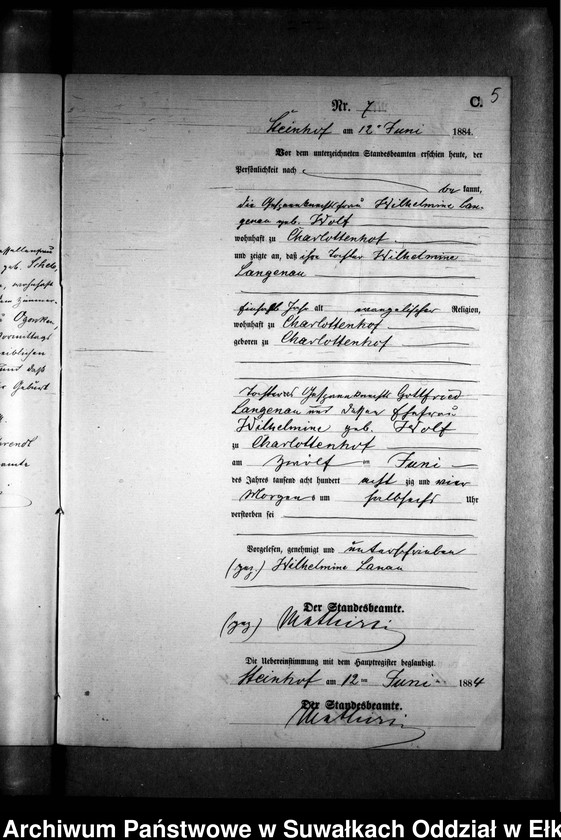 Nr. 7
C. 5
Steinhof am 12n Juni 1884.
Vor dem unterzeichneten Standesbeamten erschien heute, der
Persönlichkeit nach
be kannt,
die Gespannknechtsfrau Wilhelmine Lan-
genau geb. Wolf
wohnhaft zu Charlottenhof
und zeigte an, daß ihre Tochter Wilhelmine
Langenau
Jahr alt evangelischer Religion,
wohnhaft zu Charlottenhof
geboren zu Charlottenhof
Tochter des Gespannknechts Gottfried
Langenau und dessen Ehefrau
Wilhelmine geb. Wolf
zu Charlottenhof
am zwölf ten Juni
des Jahres tausend acht hundert acht zig und vier
Morgens um halbsechs Uhr
verstorben sei
Vorgelesen, genehmigt und unterschrieben
(gez.) Wilhelmine Lanau
Der Standesbeamte.
(gez)
Die Uebereinstimmung mit dem Hauptregister beglaubigt.
Steinhof am 12ten Juni 1884
Der Standesbeamte.
geb.
wohnhaft
Vormittags
und daß
Geburt
Archiwum Państwowe w Suwałkach Oddział w Ełk